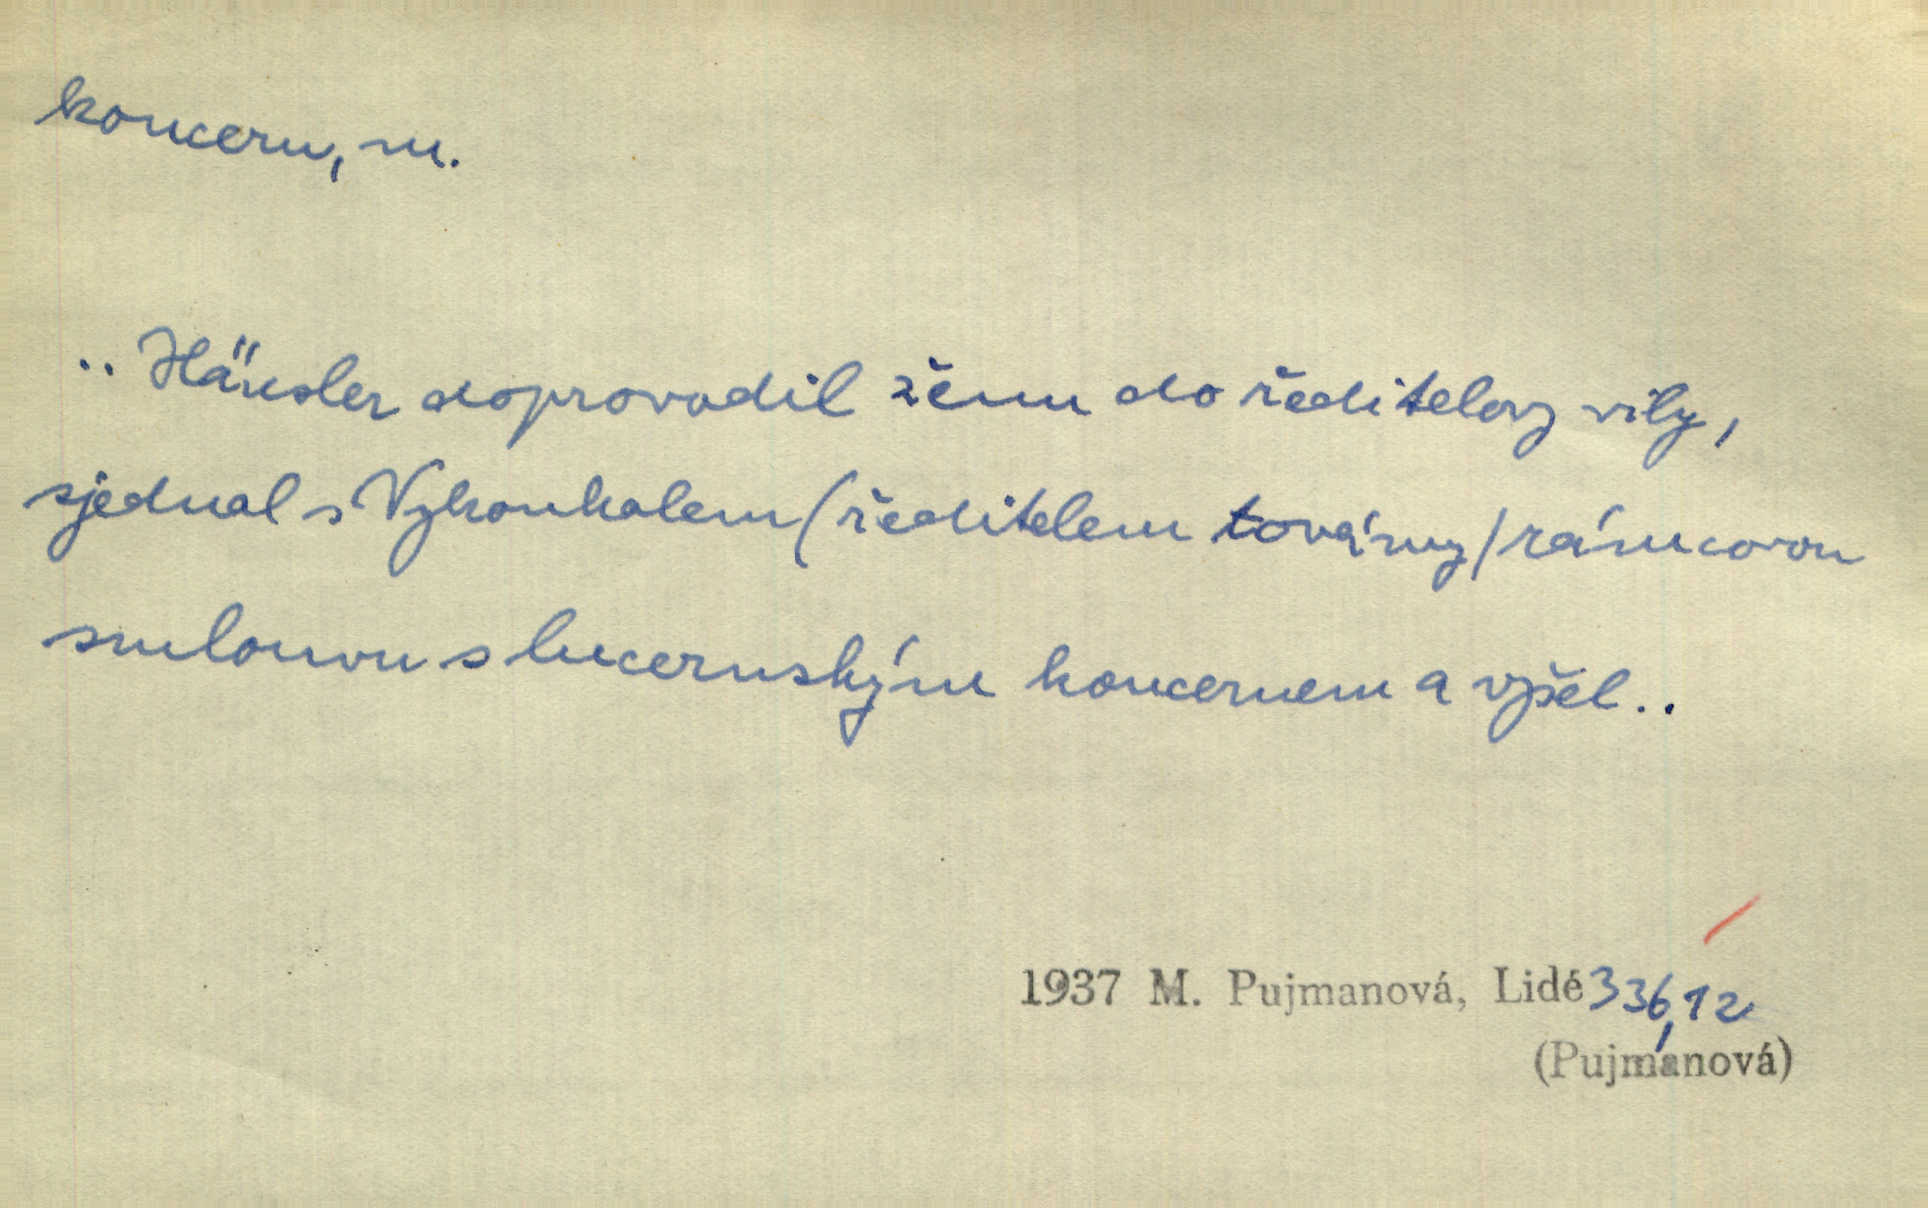 koncern, m.
.. Hänsler doprovodil ženu do ředitelovy vily,
sjednal s Vykoukalem (ředitelem továrny) rámcovou
smlouvu s lucernským koncernem a vyšel..
1937 M. Pujmanová, Lidé 336,12
(Pujmanová)